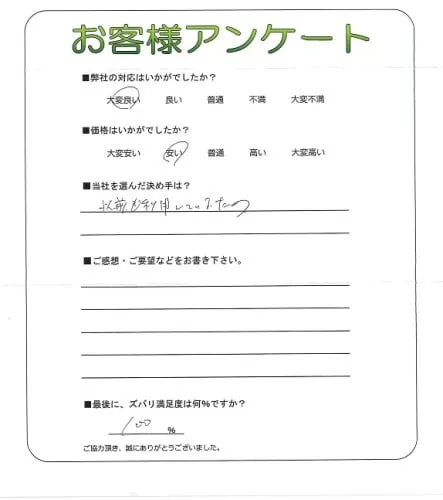 お客様アンケート
■弊社の対応はいかがでしたか?
大変良い 良い 普通 不満 大変不満
■価格はいかがでしたか?
大変安い 安い 普通 高い 大変高い
■当社を選んだ決め手は?
以前も利用していたため
■ご感想・ご要望などをお書き下さい。
■最後に、ズバリ満足度は何%ですか?
100 %
ご協力頂き、誠にありがとうございました。